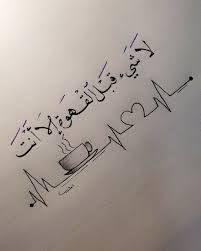 لا شيء قبل القهوة إلا أنت